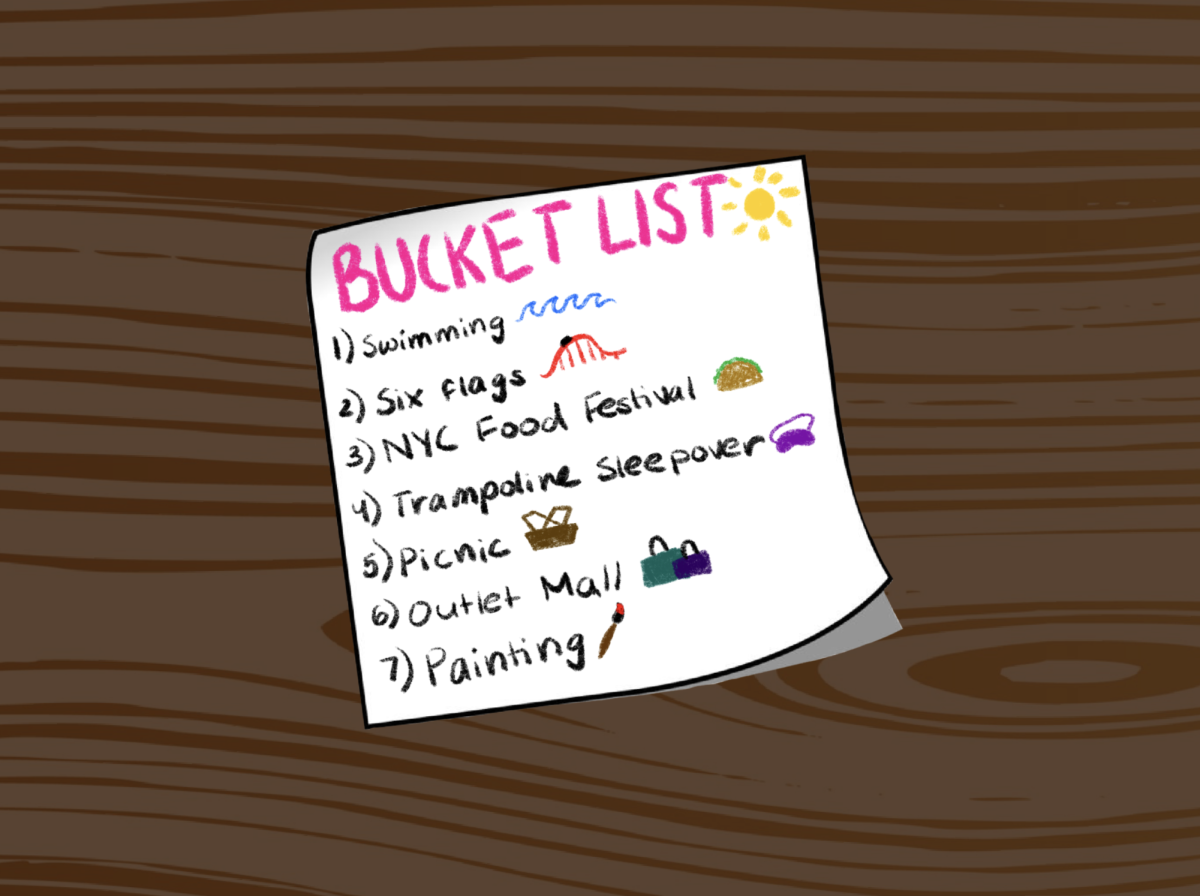 BUCKET LIST
1) Swimming
2) Six flags
3) NYC Food Festival
4) Trampoline Sleepover
5) Picnic
6) Outlet Mall
7) Painting